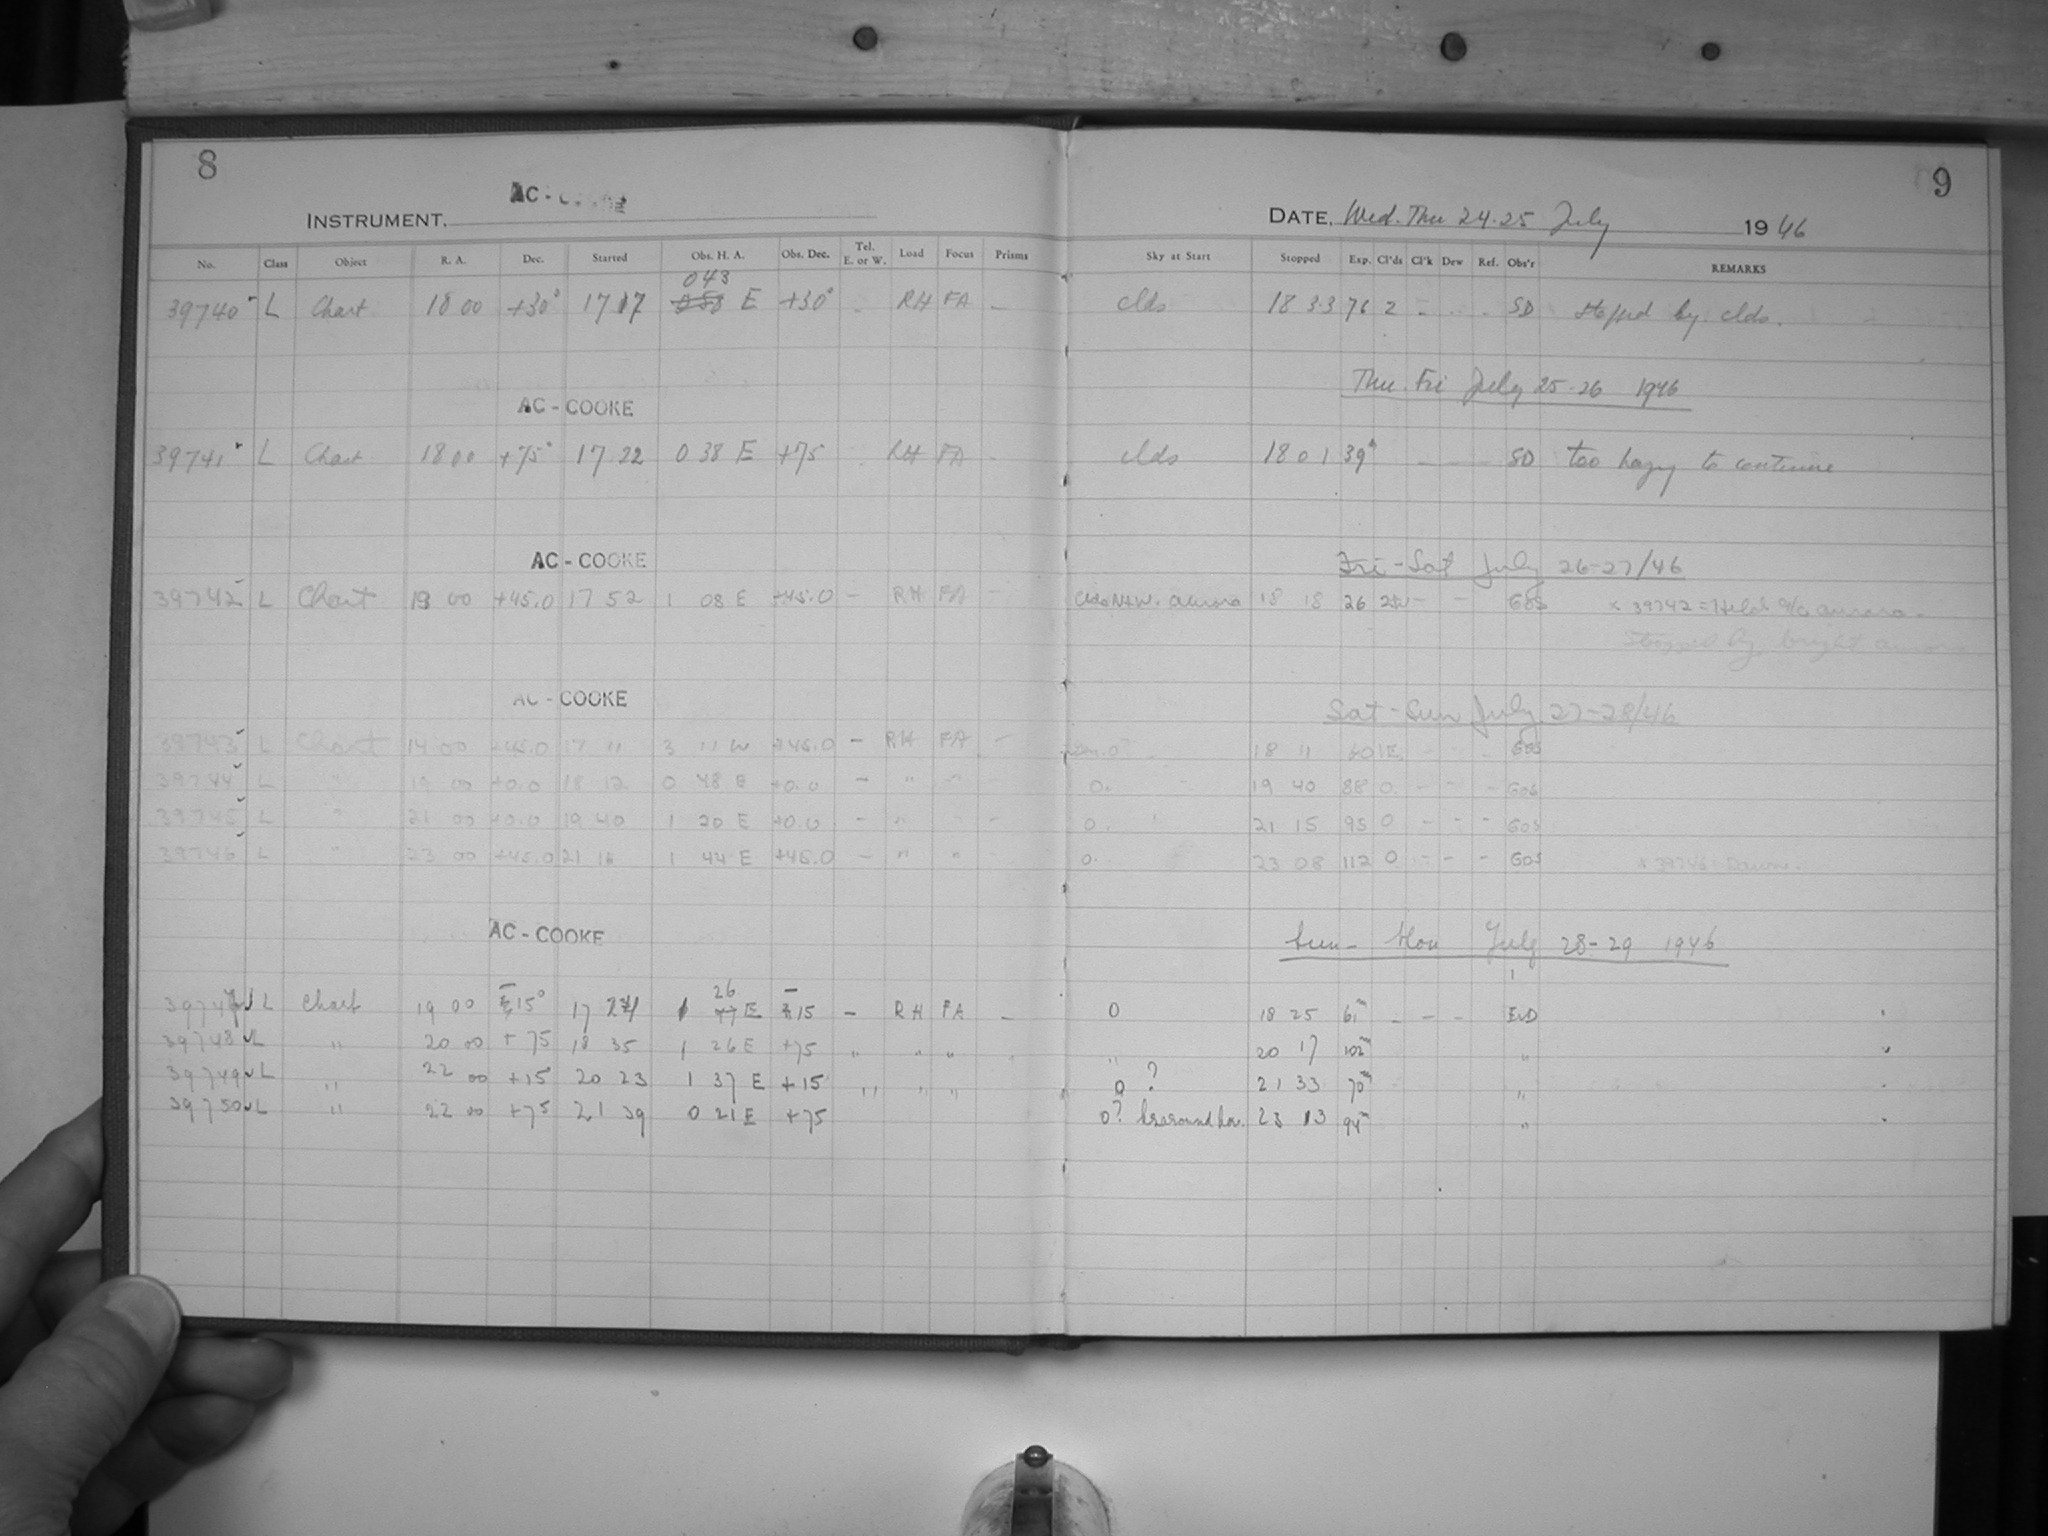 8
AC - COOKE
INSTRUMENT,
No. Class Object R. A. Dec. Started Obs. H. A. Obs. Dec. Tel. E. or W. Load Focus Prisms
043
39740 L Chart 18 00 +30° 17 17 E +30° RH FA -
AC - COOKE
39741 L Chart 18 00 +75° 17 22 0 38 E +75 RH FA -
AC - COOKE
39742 L Chart 19 00 +45.0 17 52 1 08 E +45.0 - RH FA -
AC - COOKE
39743 L Chart 14 00 +45.0 17 11 3 11 W +45.0 - RH FA -
39744 L " 19 00 +0.0 18 12 0 48 E +0.0 - " "
39745 L " 21 00 +0.0 19 40 1 20 E +0.0 - " " -
39746 L " 23 00 +45.0 21 16 1 44 E +45.0 - " " -
AC - COOKE
26
39747 L Chart 19 00 -15° 17 24 1 E -15 - RH FA -
39748 L " 20 00 +75 18 35 1 26 E +75 " " " "
39749 L " 22 00 +15 20 23 1 37 E +15 " " "
39750 L " 22 00 +75 21 39 0 21 E +75
9
DATE, Wed. Thu 24-25 July 1946
Sky at Start Stopped Exp. Cl'ds Cl'k Dew Ref. Obs'r REMARKS
clds 18 33 76 2 - SD stopped by clds.
Thu. Fri July 25-26 1946
clds 18 01 39 - - SD too hazy to continue
Fri - Sat July 26-27/46
Clds N+W. aurora 18 18 26 - - GOS x 39742 = Held a/c aurora.
Stopped by bright aurora
Sat - Sun July 27-28/46
18 11 60 1E - - - GOS
0. 19 40 88 0 - - - GOS
0. 21 15 95 0 - - - GOS
0. 23 08 112 0 - - - GOS x 39746 = Dawn.
Sun - Mon July 28-29 1946
0 18 25 61m - - - EvD
" 20 17 102m "
0 ? 21 33 70m "
0? 23 13 94m "